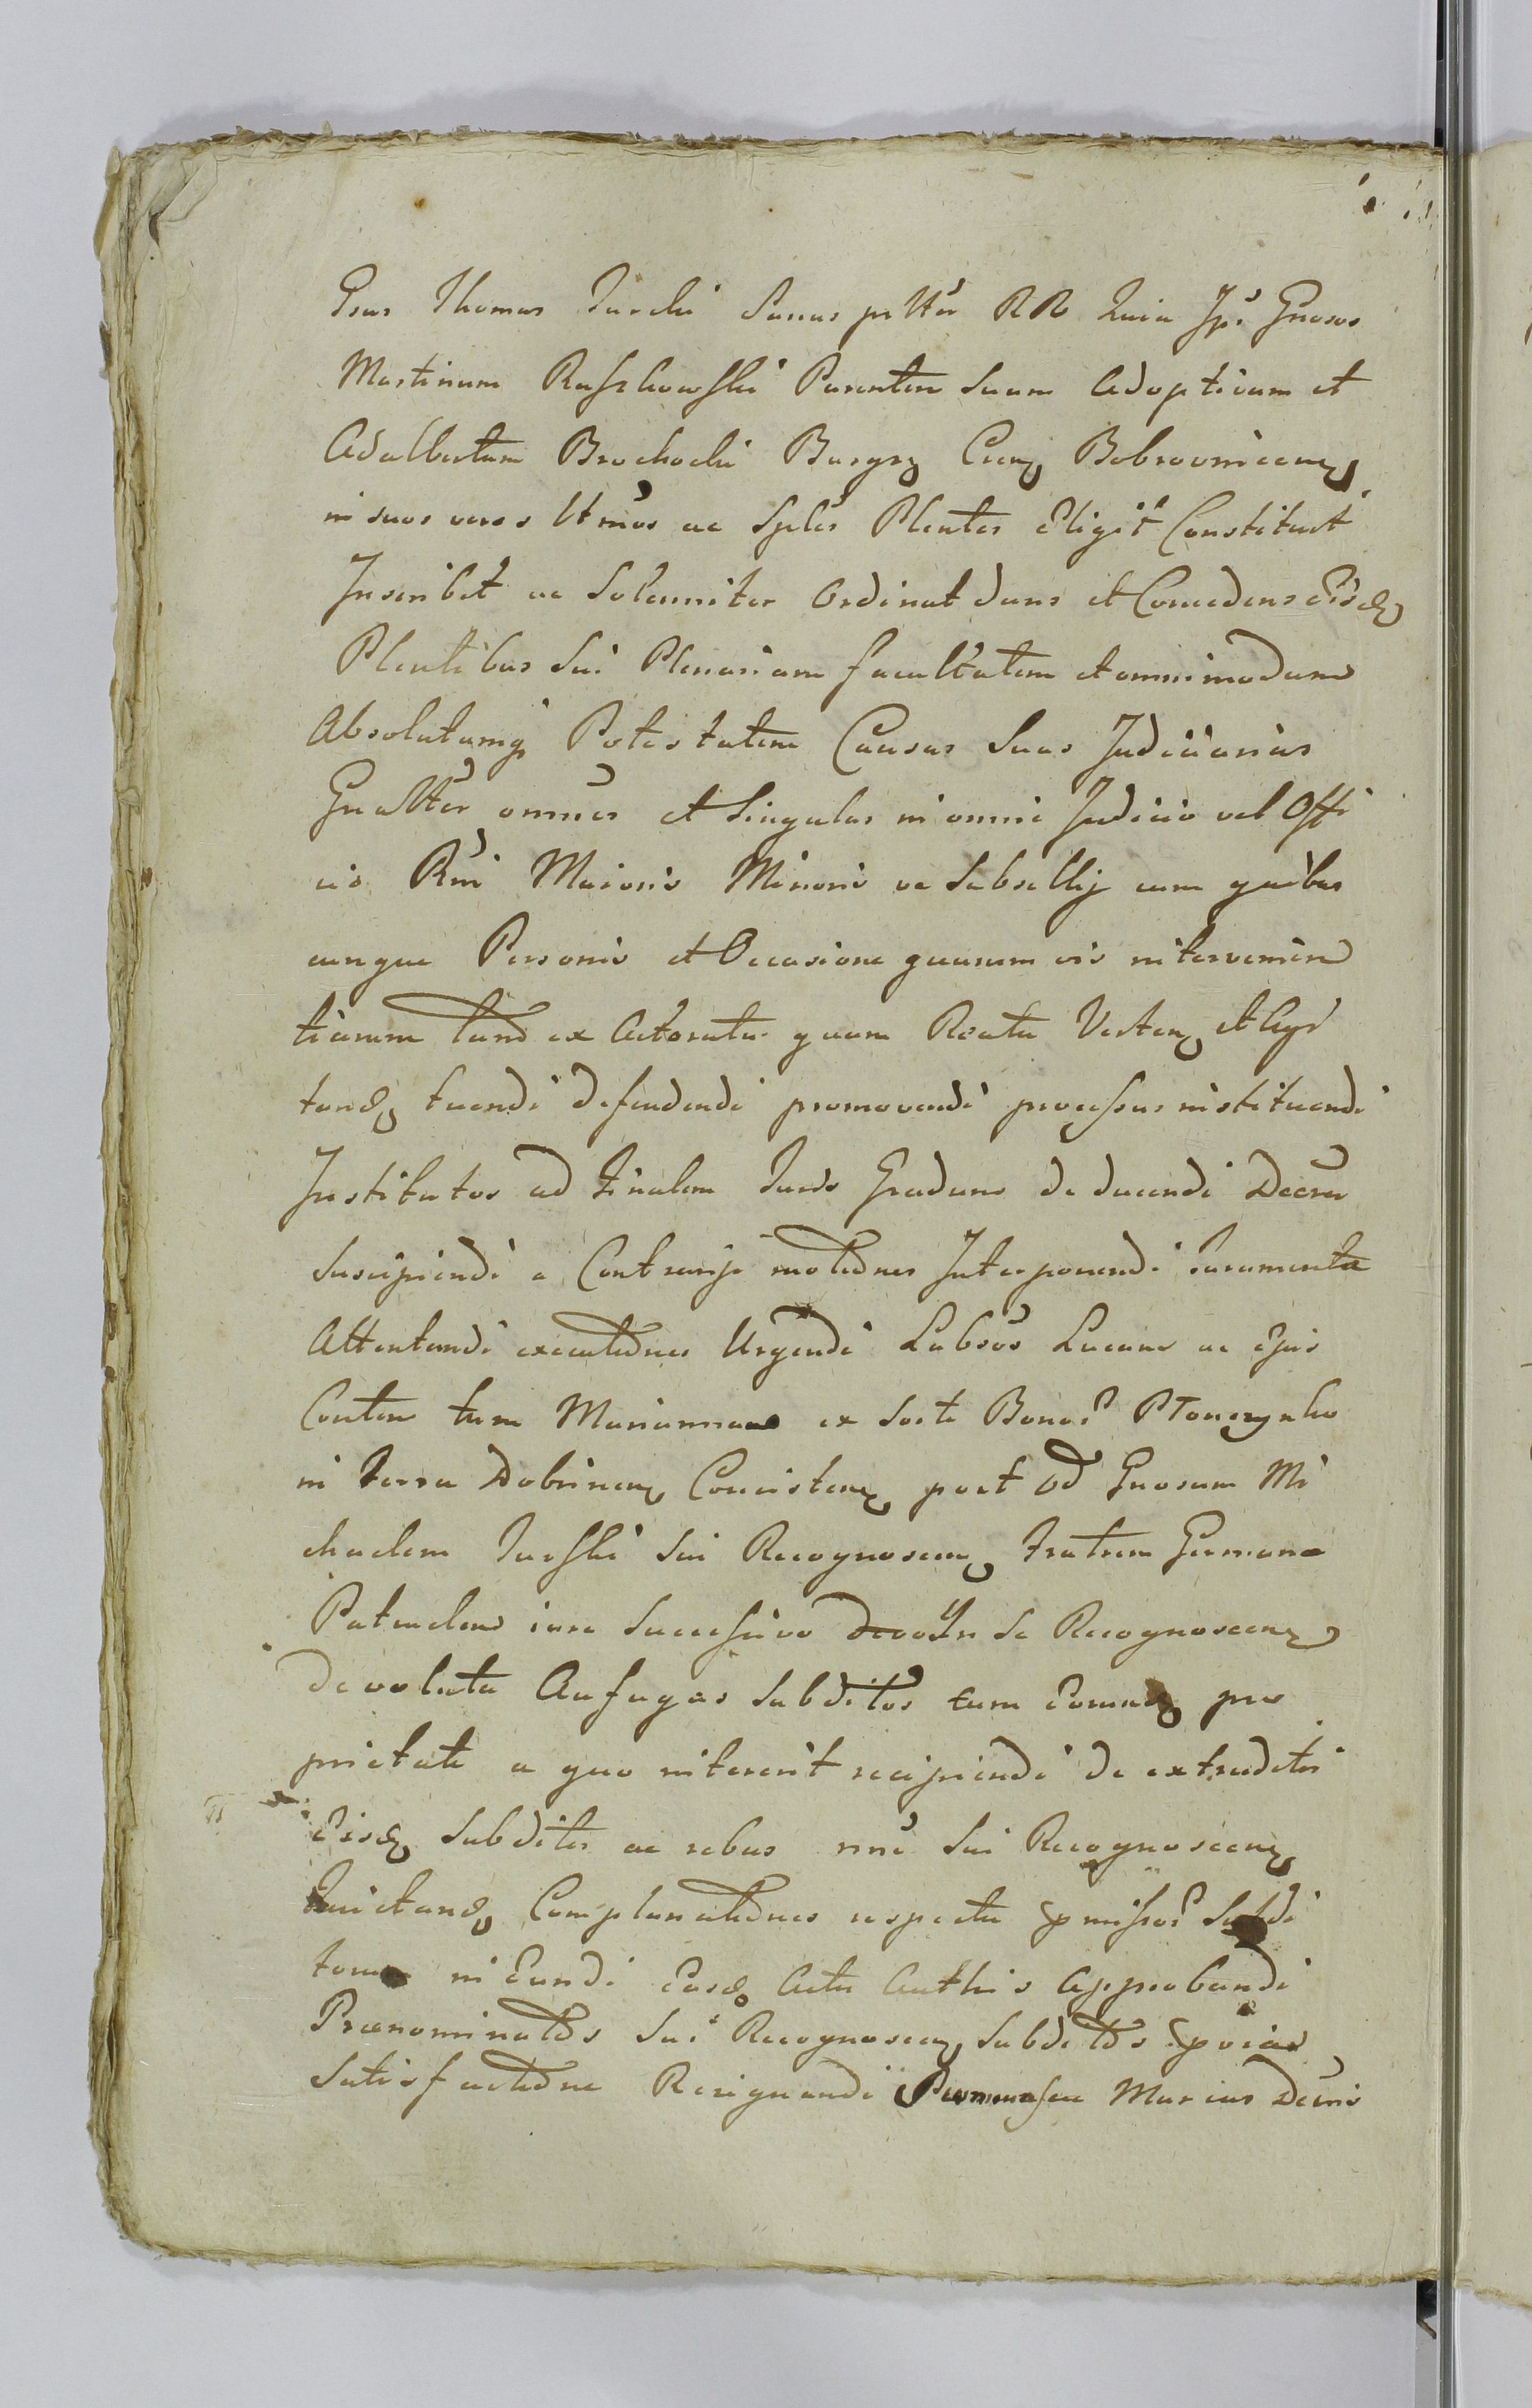 Gsus Thomas Turski Sanus pr ttr RR Quia Ips Gnosos
Martinum Ruszkowski Parentem Suum Adoptivum et
Adalbertum Brochocki Burgrz Cren Bobrovnicen
in suos veros Ltmos ac Sples Plentes Eligit Constituit
Inscribit ac Solenniter Ordinat dans et Concedens Eisd
Plentibus Sui Plenariam facultatem et omnimodam
Absolutamq Potestatem Causas Suas Judiciarias
Gnaltter omnes et Singulas in omni Judicio vel Offi
cio Rni Maioris Minoris ve Subsellij cum quibus
cunque Personis et Occasione quarum vis intervenien
tiarum tam ex Actoratu quam Reatu Verten et Agi
tand tuendi defendendi promovendi processus instituendi
Institutos ad finalem Juris Gradum deducendi Decreta
Suscipiendi a Contrarijs motiones Interponendi Juramenta
Attentandi executiones Urgendi Labsos Lucam ac Ejus
Contem tum Mariannam ex Sorte Bonor Płonczynko
in Terra Dobrinen Concisten post Od Gnosum Mi
chaelem Turski Sui Recognoscen Fratrem Germana
Patruelem iure Successivo In Se Recognoscen
devoluta Aufugas Subditos cum Eorund pro
prietate a quo intererit recipiendi de extraditis
Eisd Subditis ac rebus nne Sui Recognoscen
Quietand Complanationes respectu pmissor Subdi
torum in Eundi Easd Actis Authis Approbandi
Prænominatos Sui Recognoscen Subditos pvia
Satisfactione Resignandi Marias Decimis